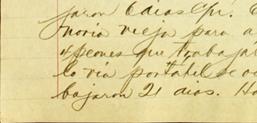 jaron 6 dias Cpi.
noria vieja para a
4 peones que trabajar
la via portatil se oc
bajaron 21 dias. Ha